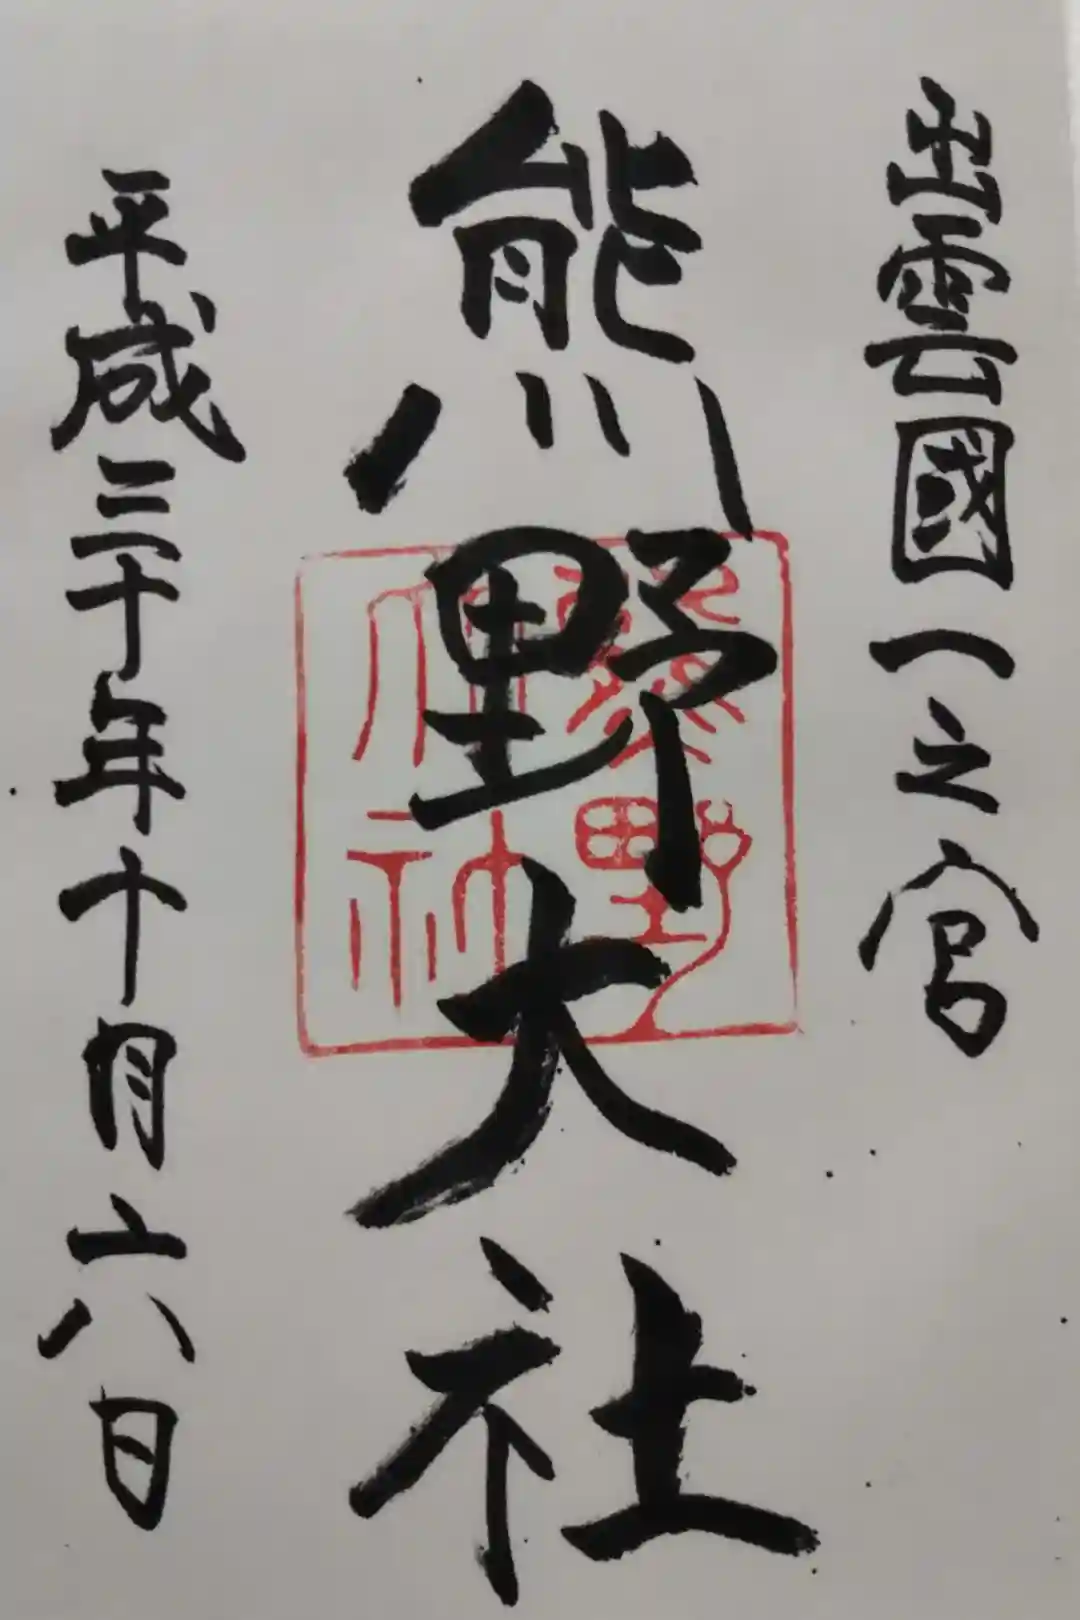 出雲國一之宮
熊野大社
熊野神社
平成三十年十月六日